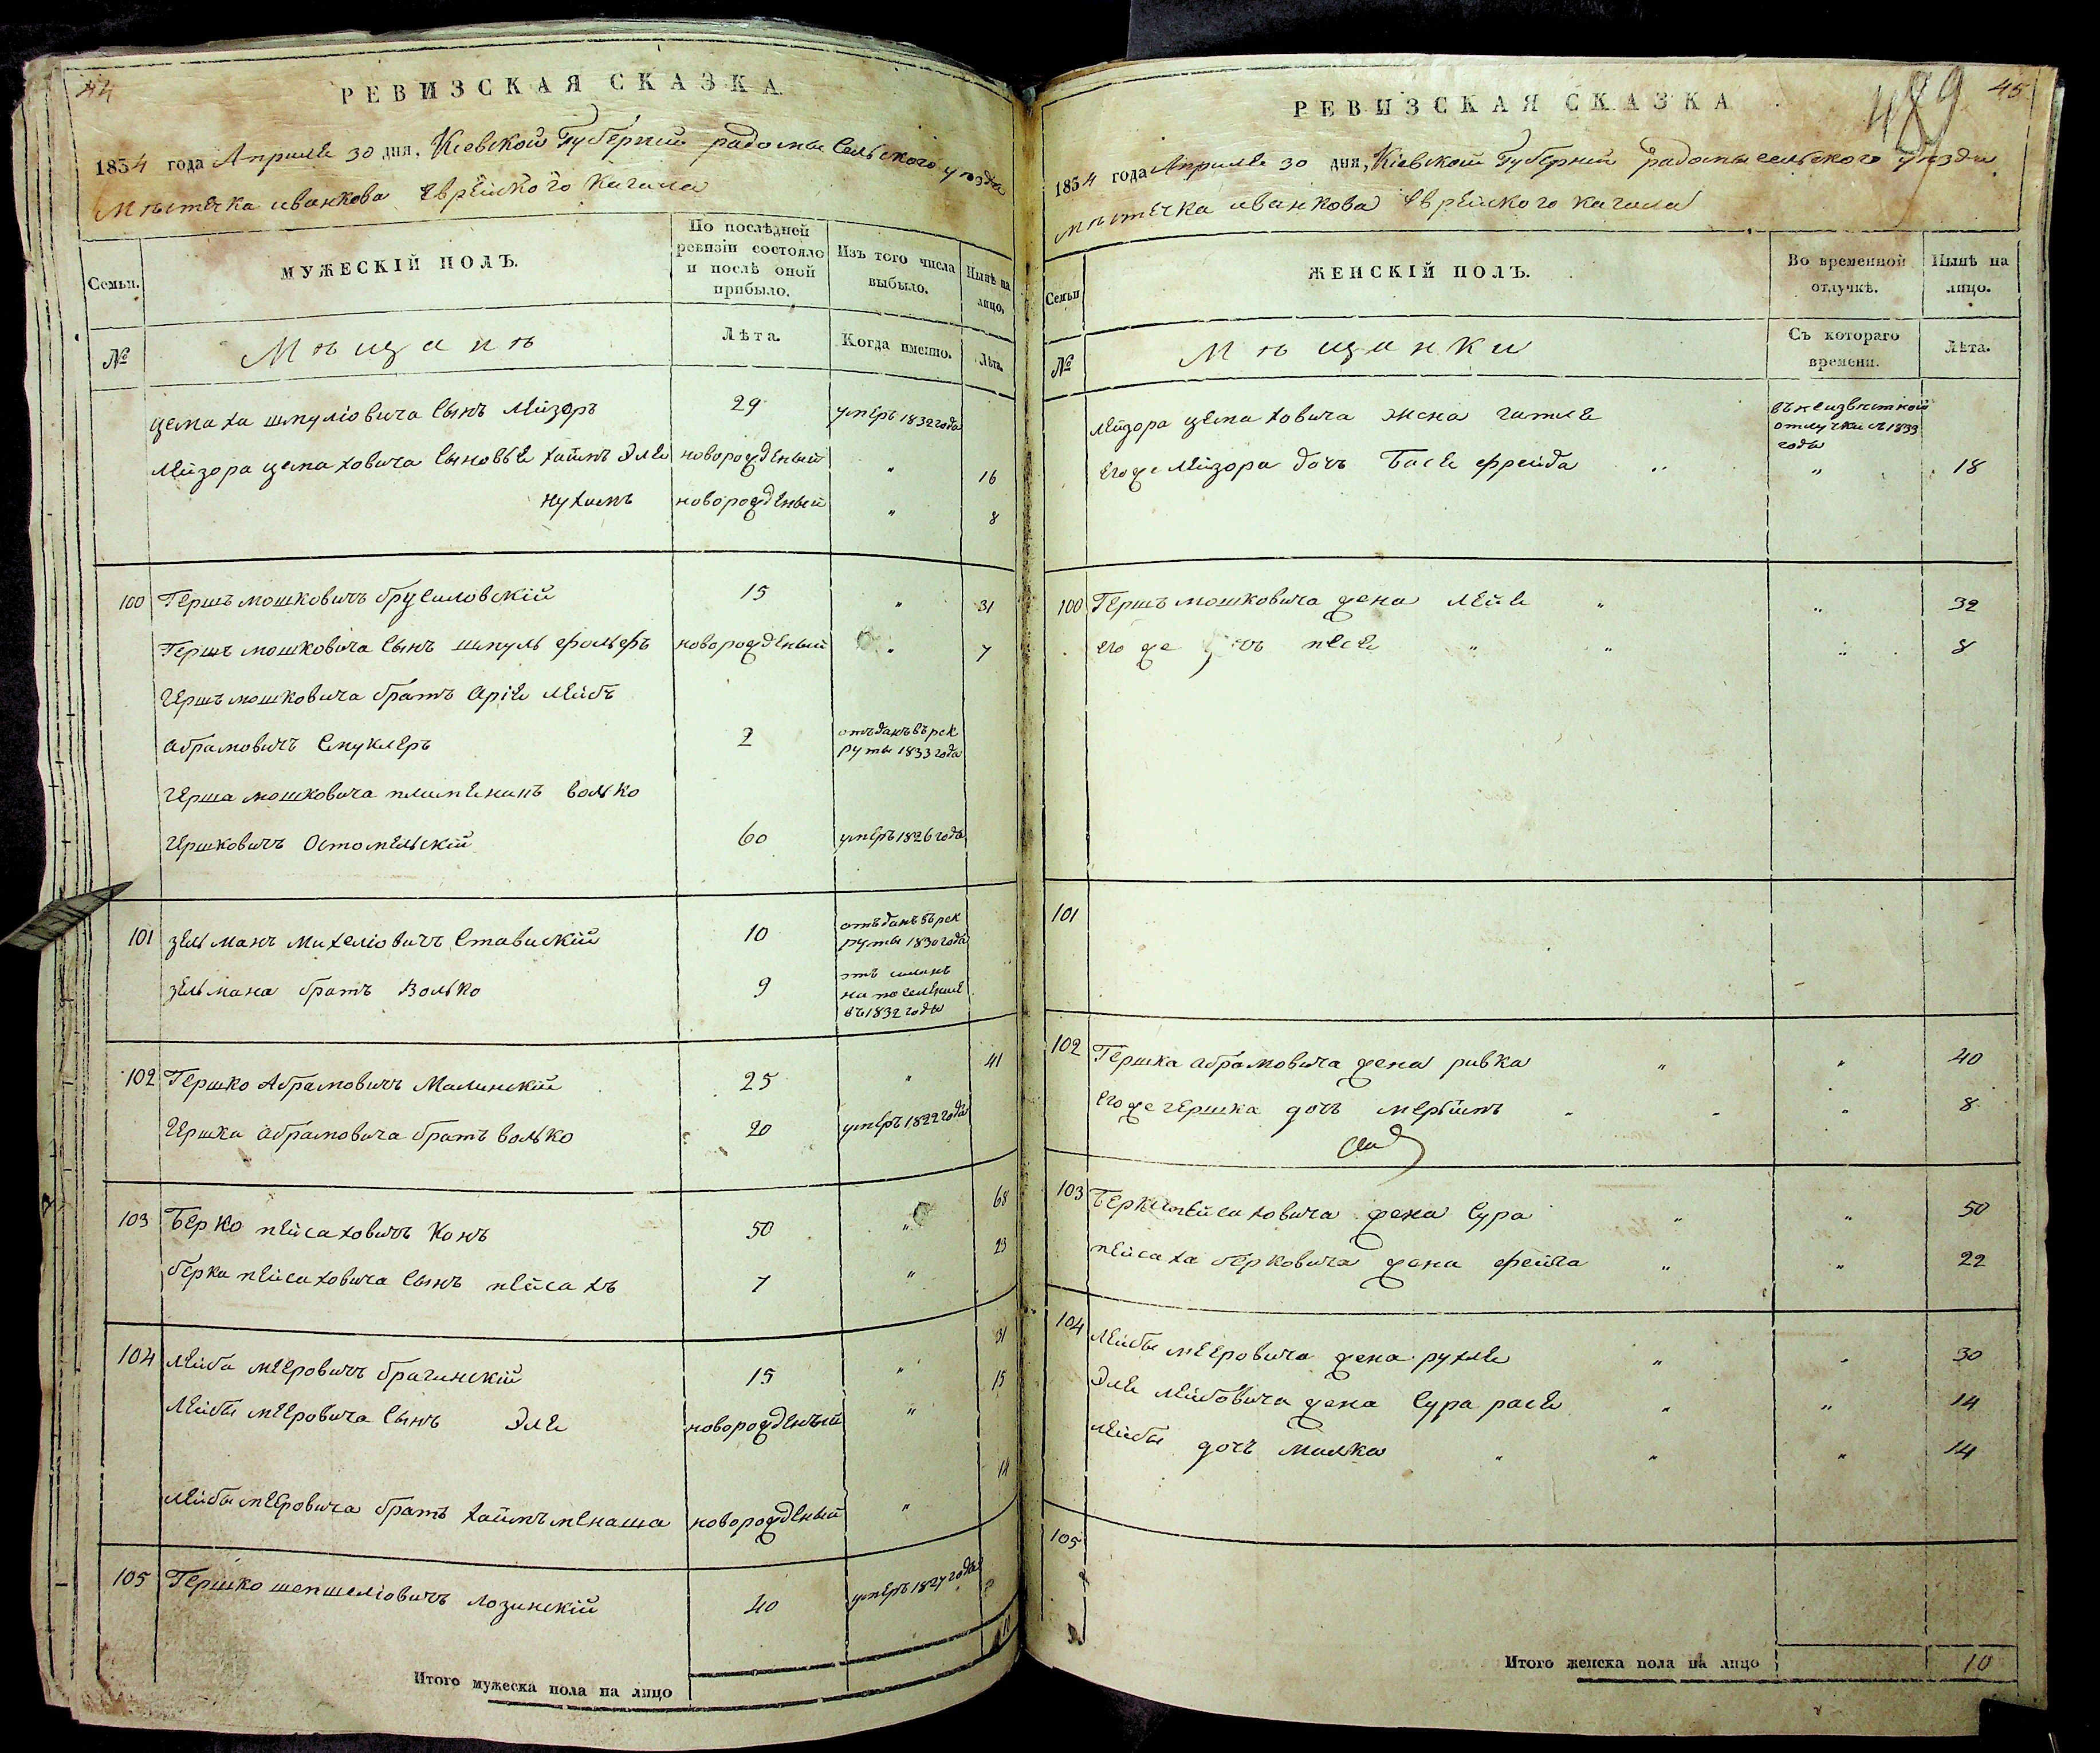 44
РЕВИЗСКАЯ СКАЗКА
1834 года Апреля 30 дня, Кіевской Губерніи радомысельского уезда
Мѣстечка иванкова Еврейского Кагала
Семьи.
МУЖЕСКІЙ ПОЛЪ.
По послѣдней ревизіи состояло и послѣ оной прибыло.
Изъ того числа выбыло.
Нынѣ на лицо.
№
Мѣщанѣ
Лѣта.
Когда именно.
Лѣта.
цемаха шмуліовича Сынъ Лейзоръ 29 умеръ 1832 года
Лейзора цемаховича Сыновье хаимъ Эле новорожденый " 16
нухимъ новорожденый " 8
100 Гершъ мошковичъ брусиловскій 15 " 31
Гершъ мошковича Сынъ шмуль фольфъ новорожденый " 7
Гершъ мошковича братъ Аріе Лейбъ
абрамовичъ Смуклеръ 2 отъданъ въ рек
руты 1833 года
Герша мошковича племенинъ волько
Гершковичъ Остомельскій 60 умеръ 1826 года
101 зельманъ михеліовичъ Ставискій 10 отъданъ въ рек
руты 1830 года
зельмана братъ Волько 9
на поселение
въ 1832 годы
102 Гершко Абрамовичъ Малинскій 25 " 41
Гершки абрамовича братъ волько 20 умеръ 1822 года
103 Берко пейсаховичъ Конъ 50 " 68
берки пейсаховича Сынъ пейсахъ 7 " 23
104 Лейба мееровичъ брагинскій 15 " 31
Лейбы мееровича Сынъ Эле новорожденый " 15
Лейбы мееровича братъ хаимъ менаша новорожденый " 14
105 Гершко шепшеліовичъ лозинскій 40 умеръ 1827 года
Итого мужеска пола на лицо
489
45
РЕВИЗСКАЯ СКАЗКА
1834 года Апреля 30 дня, Кіевской Губерніи радомысельского уезда
мѣстечка иванкова Еврейского кагала
Семьи
ЖЕНСКІЙ ПОЛЪ.
Во временной отлучкѣ.
Нынѣ на лицо.
№
Мѣщанки
Съ котораго времени.
Лѣта.
Лейзора цемаховича жена гитле въ неизвестной
отлучки с 1833
годы
его же Лейзора дочъ Басе фрейда " 18
100 Гершъ мошковича жена лейе " " 32
его же дочъ песе " " " 8
101
102 Гершка абрамовича жена ривка " " 40
его же гершка дочъ мерьимъ " " " 8
103 Берки пейсаховича жена Сура " " 50
пейсаха берковича жена фейга " " 22
104 Лейбы мееровича жена рухле " " 30
Эле лейбовича жена Сура расе " " 14
лейбы дочъ малка " " " 14
105
Итого женска пола на лицо 10